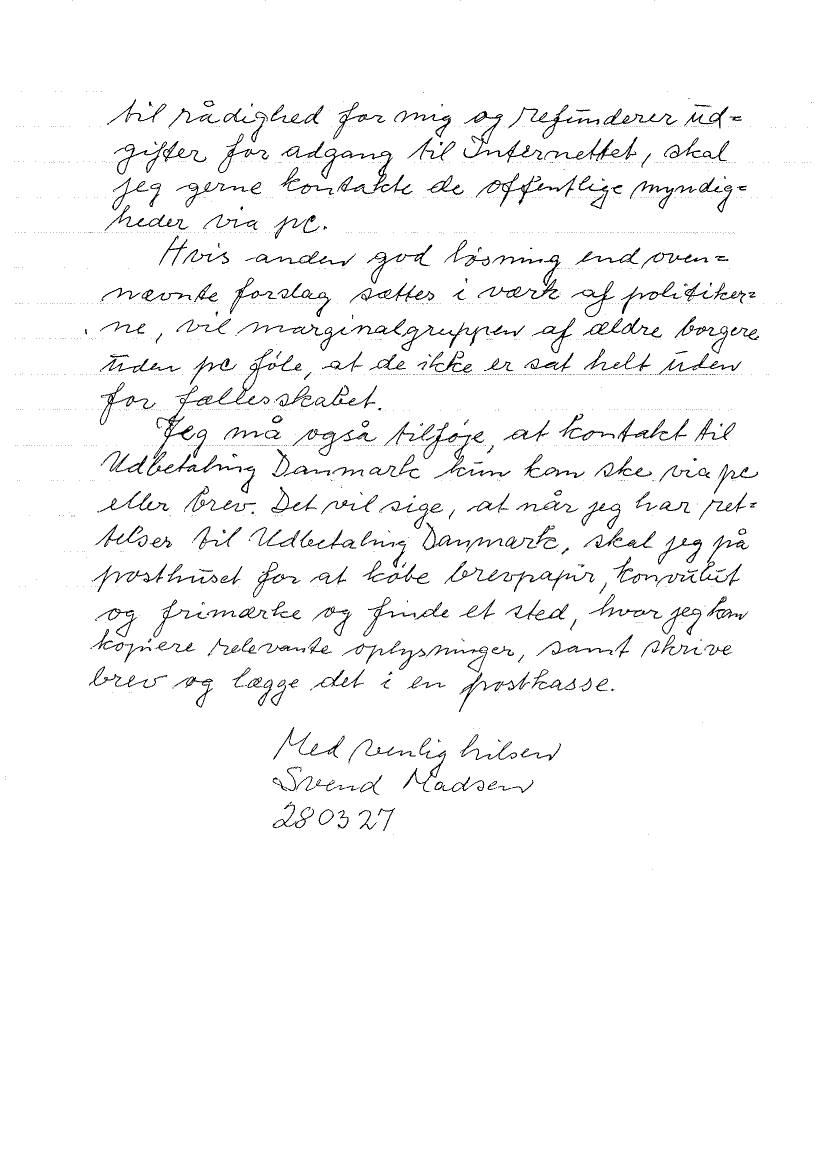 til rådighed for mig og refunderer ud=
gifter for adgang til Internettet, skal
jeg gerne kontakte de offentlige myndig=
heder via pc.
Hvis anden god løsning end oven=
nævnte forslag sættes i værk af politiker=
ne, vil marginalgruppen af ældre borgere
uden pc føle, at de ikke er sat helt uden
for fællesskabet.
Jeg må også tilføje, at kontakt til
Udbetaling Danmark kun kan ske via pc
eller brev. Det vil sige, at når jeg har ret=
telser til Udbetaling Danmark, skal jeg på
posthuset for at købe brevpapir, konvulut
og frimærke og finde et sted, hvor jeg kan
kopiere relevante oplysninger, samt skrive
brev og lægge det i en postkasse.
Med venlig hilsen
Svend Madsen
280327